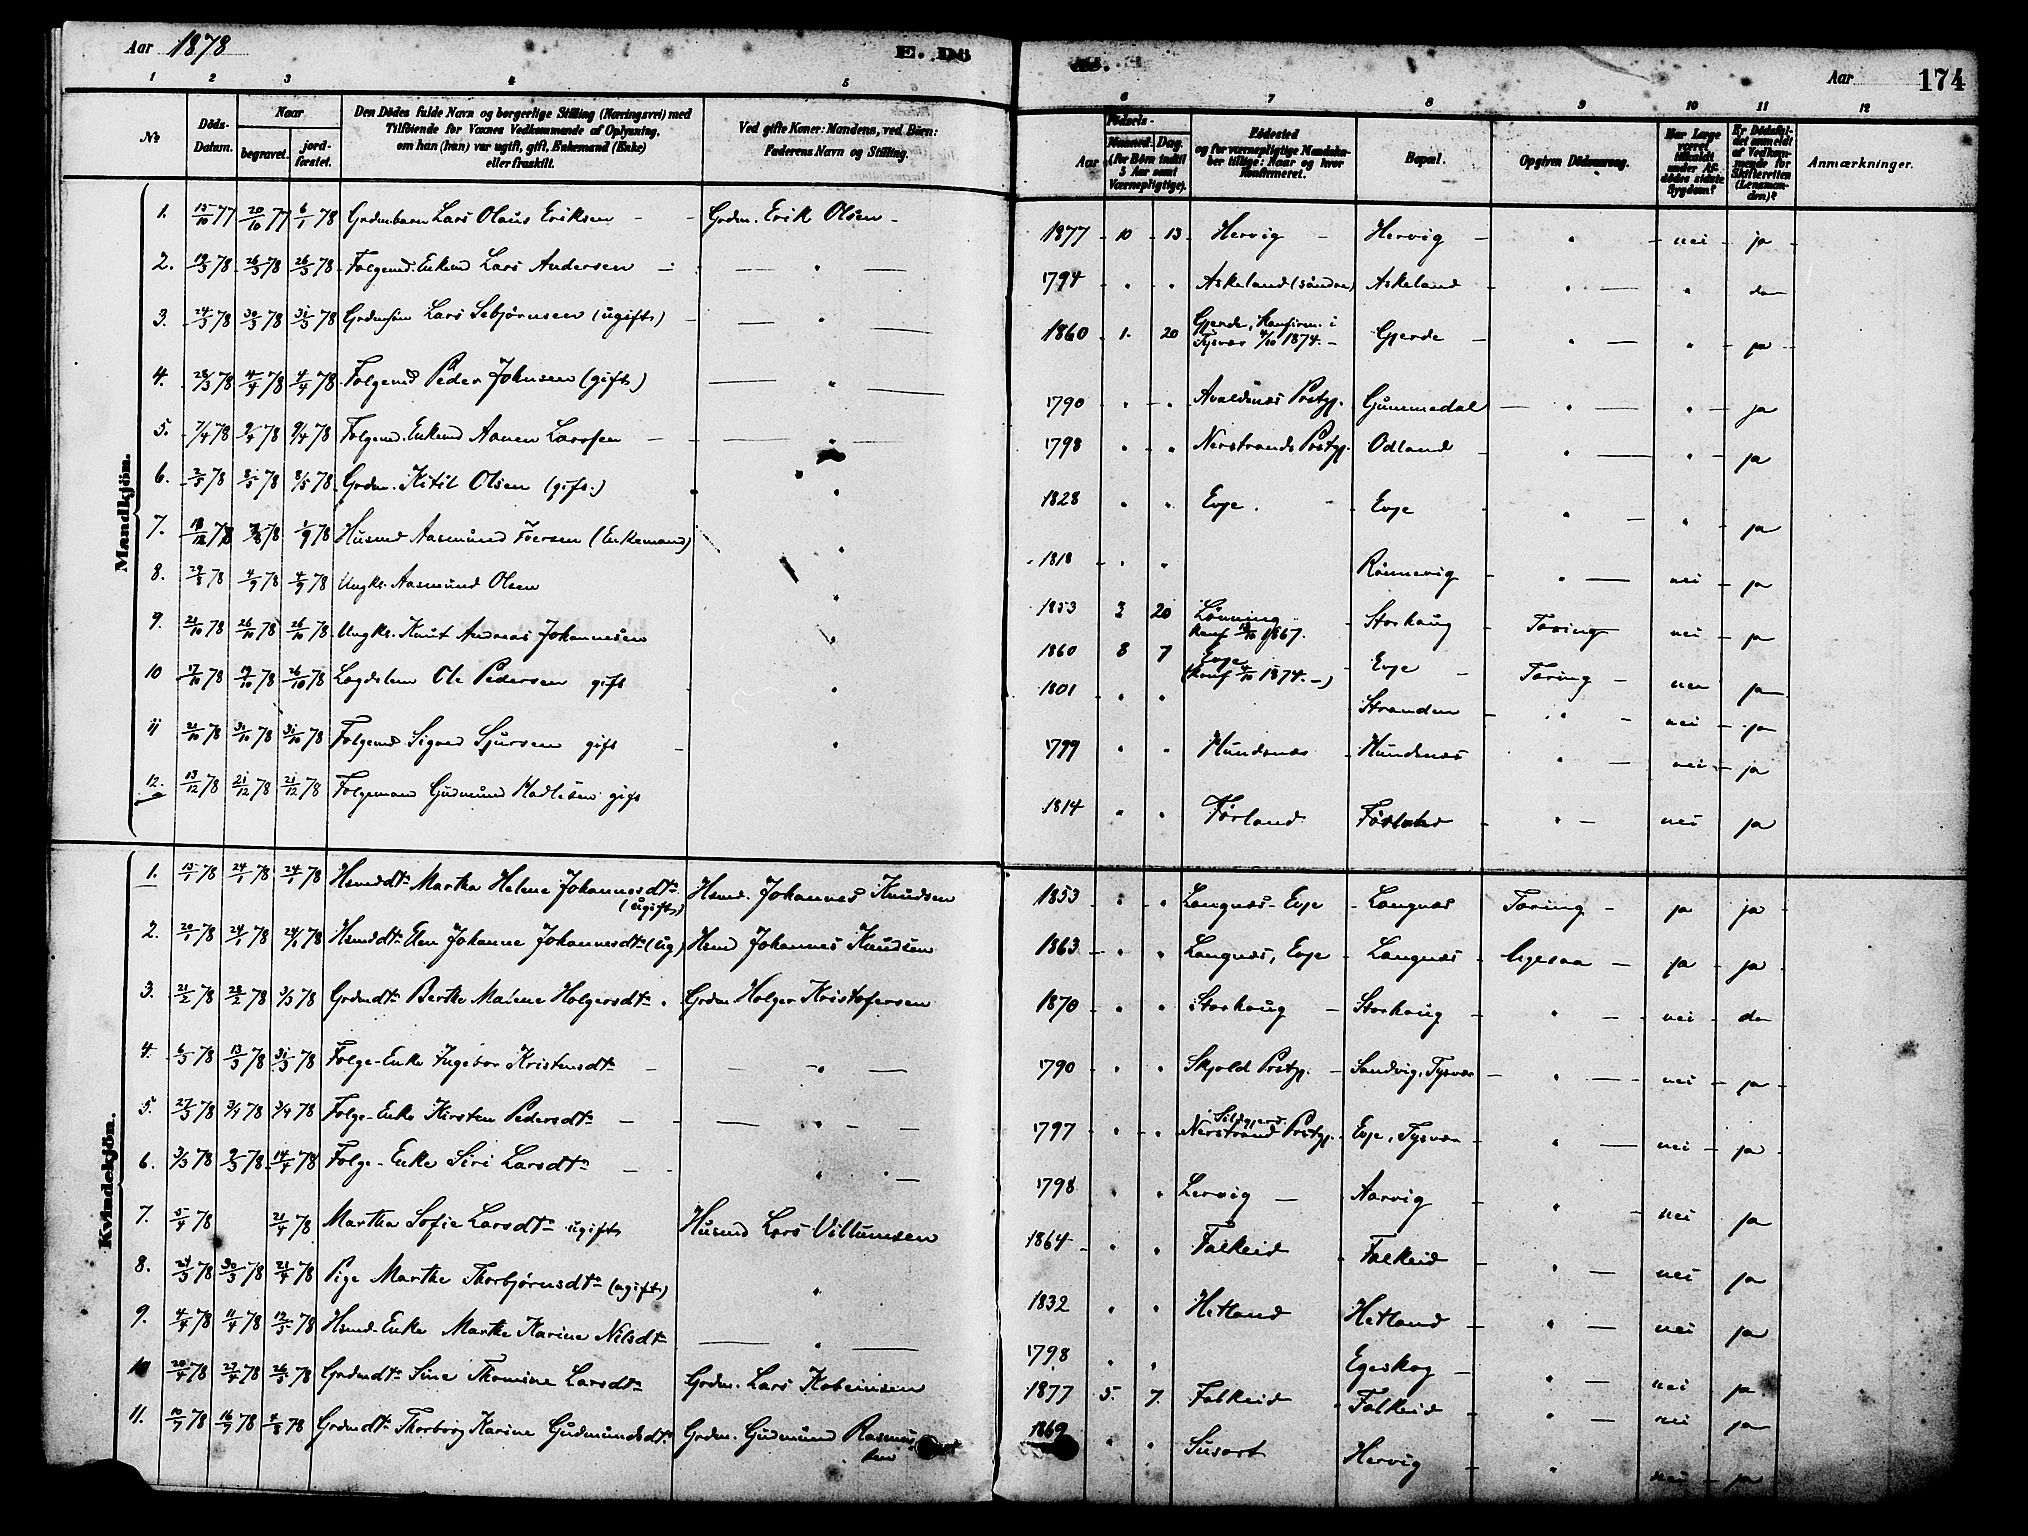 Aar 1878
E. Dö
Aar 174
1 2 3 4 5
6 7 8 9 10 11 12
No
Döds-Datum.
Naar
begravet.
jordfæstet.
Den Dödes fulde Navn og borgerlige Stilling (Næringsvei) med
Tilföiende for Voxnes Vedkommende af Oplysning,
om han (hun) var ugift, gift, Enkemand (Enke)
eller fraskilt.
Ved gifte Koner: Mandens, ved Börn:
Faderens Navn og Stilling.
Födsels-
Aar
Maaned.
Dag.
(for Börn indtil
5 Aar samt
Værnepligtige).
Födested
og for værnepligtige Mandskaber
tillige: Naar og hvor
Konfirmeret.
Bopæl.
Opgiven Dödsaarsag.
Har Læge
været
tilkaldt
under Afdödes
sidste
Sygdom?
Er Dödsfaldet
anmeldt
af Vedkommende
for
Skifteretten
(Lensmanden)?
Anmærkninger.
Mandkjön.
1. 15/10 77 20/10 77 6/1 78 Grdmbarn Lars Olaus Eriksen Grdm. Erik Olsen 1877 10 13 Hervig Hervig " nei ja
2. 19/3 78 26/3 78 26/3 78 Folgemd. Enkemd Lars Andersen " 1794 " " Askeland (söndre) Askeland " " do
3. 24/3 78 30/3 78 31/3 78 Grdmsön Lars Sebjørnsen (ugift) " 1860 1. 20 Gjerde, Konfirm. i
Tysvær 4/10 1874. Gjerde " " ja
4. 28/3 78 4/4 78 4/4 78 Folgemd Peder Johnsen (gift) " 1790 " " Avaldsnæs Prstgj. Gummedal " " ja
5. 7/4 78 9/4 78 9/4 78 Folgemd. Enkemd Aanen Larssen " 1798 " " Nerstrands Prstgj. Odland " " ja
6. 2/5 78 8/5 78 8/5 78 Grdm. Kitil Olsen (gift.) " 1828 " " Evje. Evje " " ja
7. 78 78 1/9 78 Husmd Aasmund Iversen (Enkemand) " 1818 " " Rönnevig " nei ja
8. 29/8 78 4/9 78 4/9 78 Ungk. Aasmund Olsen " 1853 3 20 Lönning
Konf 1867. Storhaug Tæring nei ja
9. 20/10 78 26/10 78 26/10 78 Ungk. Knut Andreas Johannesen " 1860 8 7 Evje
(Konf 4/10 1874.) Evje Tæring nei ja
10 17/10 78 19/10 78 26/10 78 Lægdslem Ole Pedersen gift " 1801 " " Stranden " nei ja
11 21/10 78 31/10 78 31/10 78 Folgemd Sigved Sjursen gift " 1799 " " Hundsnæs Hundsnæs " nei ja
12. 13/12 78 21/12 78 21/12 78 Folgemand Gudmund Madlisen gift 1814 " " Førland Førland " nei ja
Kvindekjön.
1. 15/1 78 24/1 78 24/1 78 Hsmddtr Martha Helene Johannesdtr
(ugift) Hsmd. Johannes Knudsen 1853 " " Langnæs-Evje Langnæs Tæring ja ja
2. 20/1 78 24/1 78 24/1 78 Hsmddtr Elen Johanne Johannesdtr (ug) Hsmd Johannes Knudsen 1863 " " Langnæs, Evje Langnæs ligesaa ja ja
3. 21/2 78 28/2 78 3/3 78 Grdmdtr Berthe Malene Holgersdtr Grdm Holger Kristofersen 1870 " " Storhaug Storhaug " nei do
4. 6/3 78 13/3 78 31/3 78 Folge-Enke Ingebor Kristensdtr " 1790 " " Skjold Prstgj. Sandvig, Tysvær " nei ja
5. 27/3 78 3/4 78 3/4 78 Folge-Enke Kirsten Pedersdtr " 1797 " " Nerstrand Prstgj. Evje, Tysvær " nei ja
6. 3/3 78 9/3 78 14/4 78 Folge-Enke Siri Larsdtr " 1798 " " Lervig Aarvig " nei ja
7. 15/4 78 21/4 78 Martha Sofie Larsdtr ugift Husmd Lars Villumsen 1864 " " Falkeid Falkeid " nei ja
8. 24/3 78 30/3 78 21/4 78 Pige Marthe Thorbjørnsdtr (ugift) " 1832 " " Hetland Hetland " nei ja
9. 4/4 78 11/4 78 12/5 78 Hsmd-Enke Marthe Karine Nilsdtr " 1798 " " Egeskog " nei ja
10 20/4 78 27/4 78 26/5 78 Grdmdtr Sine Thomine Larsdtr Grdm. Lars Kobeinsen 1877 5. 7. Falkeid Falkeid " nei ja
11. 10/7 78 16/7 78 4/8 78 Grdmdtr Thorborg Karine Gudmundsdtr Grdm. Gudmund Rasmussen 1869 " " Susort Hervig " nei ja